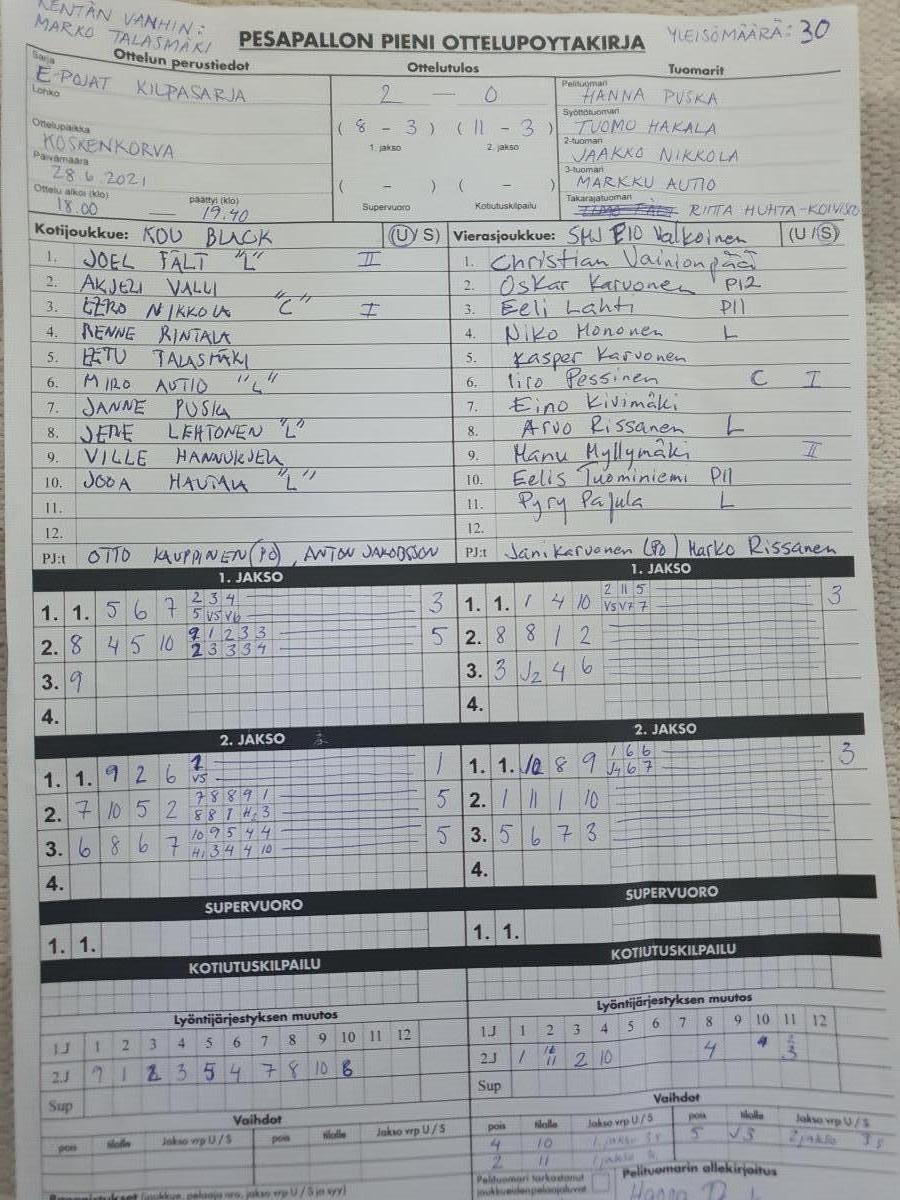 KENTÄN VANHIN:
MARKO TALASMÄKI
PESAPALLON PIENI OTTELUPOYTAKIRJA
YLEISÖMÄÄRÄ: 30
Ottelun perustiedot
Ottelutulos
Tuomarit
Sarja
E-POJAT KILPASARJA
Lohko
Ottelupaikka
KOSKENKORVA
Päivämäärä
28.6.2021
Ottelu alkoi (klo) päättyi (klo)
18.00 — 19.40
2 — 0
( 8 - 3 ) ( 11 - 3 )
1. jakso 2. jakso
( - ) ( - )
Supervuoro Kotiutuskilpailu
Pelituomari
HANNA PUSKA
Syöttötuomari
TUOMO HAKALA
2-tuomari
JAAKKO NIKKOLA
3-tuomari
MARKKU AUTIO
Takarajatuomari
RIITTA HUHTA-KOIVISTO
Kotijoukkue: KOU BLACK (U / S)
1. JOEL FÄLT "L" II
2. AKJELI VALLI
3. EERO NIKKOLA "C" I
4. RINTALA
5. EETU TALASMÄKI
6. MIRO AUTIO "L"
7. JANNE PUSKA
8. LEHTONEN "L"
9. VILLE
10. JOOA HAUTALA "L"
11.
12.
PJ:t OTTO KAUPPINEN (PO), ANTON JAKOBSSON
Vierasjoukkue: SMJ E10 Valkoinen (U / S)
1. Christian Vainionpää
2. Oskar Karvonen P12
3. Eeli Lahti P11
4. Niko Hononen L
5. Kasper Karvonen
6. Iiro Pessinen C I
7. Eino Kivimäki
8. Arvo Rissanen L
9. Manu Myllymäki II
10. Eelis Tuominiemi P11
11. Pyry Pajula L
12.
PJ:t Jani Karvonen (PO) Marko Rissanen
1. JAKSO
1. 1. 5 6 7 2 3 4 3
5 V5 V6
2. 8 4 5 10 1 2 3 3 5
2 3 3 3 4
3. 9
4.
1. JAKSO
1. 1. 1 4 10 2 11 5 3
V5 V7 7
2. 8 8 1 2
3. 3 J2 4 6
4.
2. JAKSO
1. 1. 9 2 6 1
V5
2. 7 10 5 2 7 8 8 9 1 5
8 8 1 H2 3
3. 6 8 6 7 10 9 5 4 4 5
H1 3 4 4 10
4.
2. JAKSO
1. 1. 8 9 1 6 6 3
J4 6 7
2. 1 11 1 10
3. 5 6 7 3
4.
SUPERVUORO
1. 1.
SUPERVUORO
1. 1.
KOTIUTUSKILPAILU
KOTIUTUSKILPAILU
Lyöntijärjestyksen muutos
1.J 1 2 3 4 5 6 7 8 9 10 11 12
2.J 9 1 2 3 5 4 7 8 10 6
Sup
Lyöntijärjestyksen muutos
1.J 1 2 3 4 5 6 7 8 9 10 11 12
2.J 1 11 2 10 4 3
Sup
Vaihdot
pois tilalle Jakso vrp U / S pois tilalle Jakso vrp U / S
Vaihdot
pois tilalle Jakso vrp U / S pois tilalle Jakso vrp U / S
4 10 1 jakso 3s 5 J3 2 jakso 3s
2 11 1 jakso
Pelituomari tarkastanut
joukkueiden pelaajaluvat
Pelituomarin allekirjoitus
Hanna